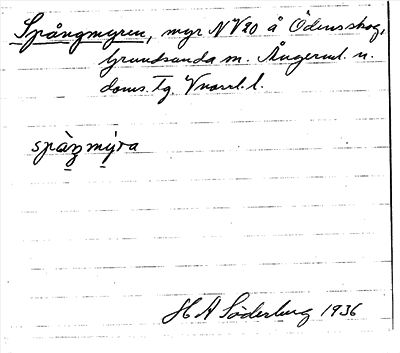 Spångmyren, myr N V20 å Ödens skog,
Grundsunda sn. Ångerml. n.
doms. tg. Vnorrl. l.
spàŋmýra
H A Söderberg 1936